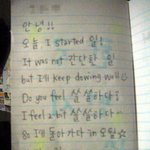 안녕!!
오늘 I started 일!
It was not 간단한 일
but I'll keep dowing well
Do you feel 쌀쌀하다?
I feel a bit 쌀쌀하다
So I'll 돌아가다 in 오월☆